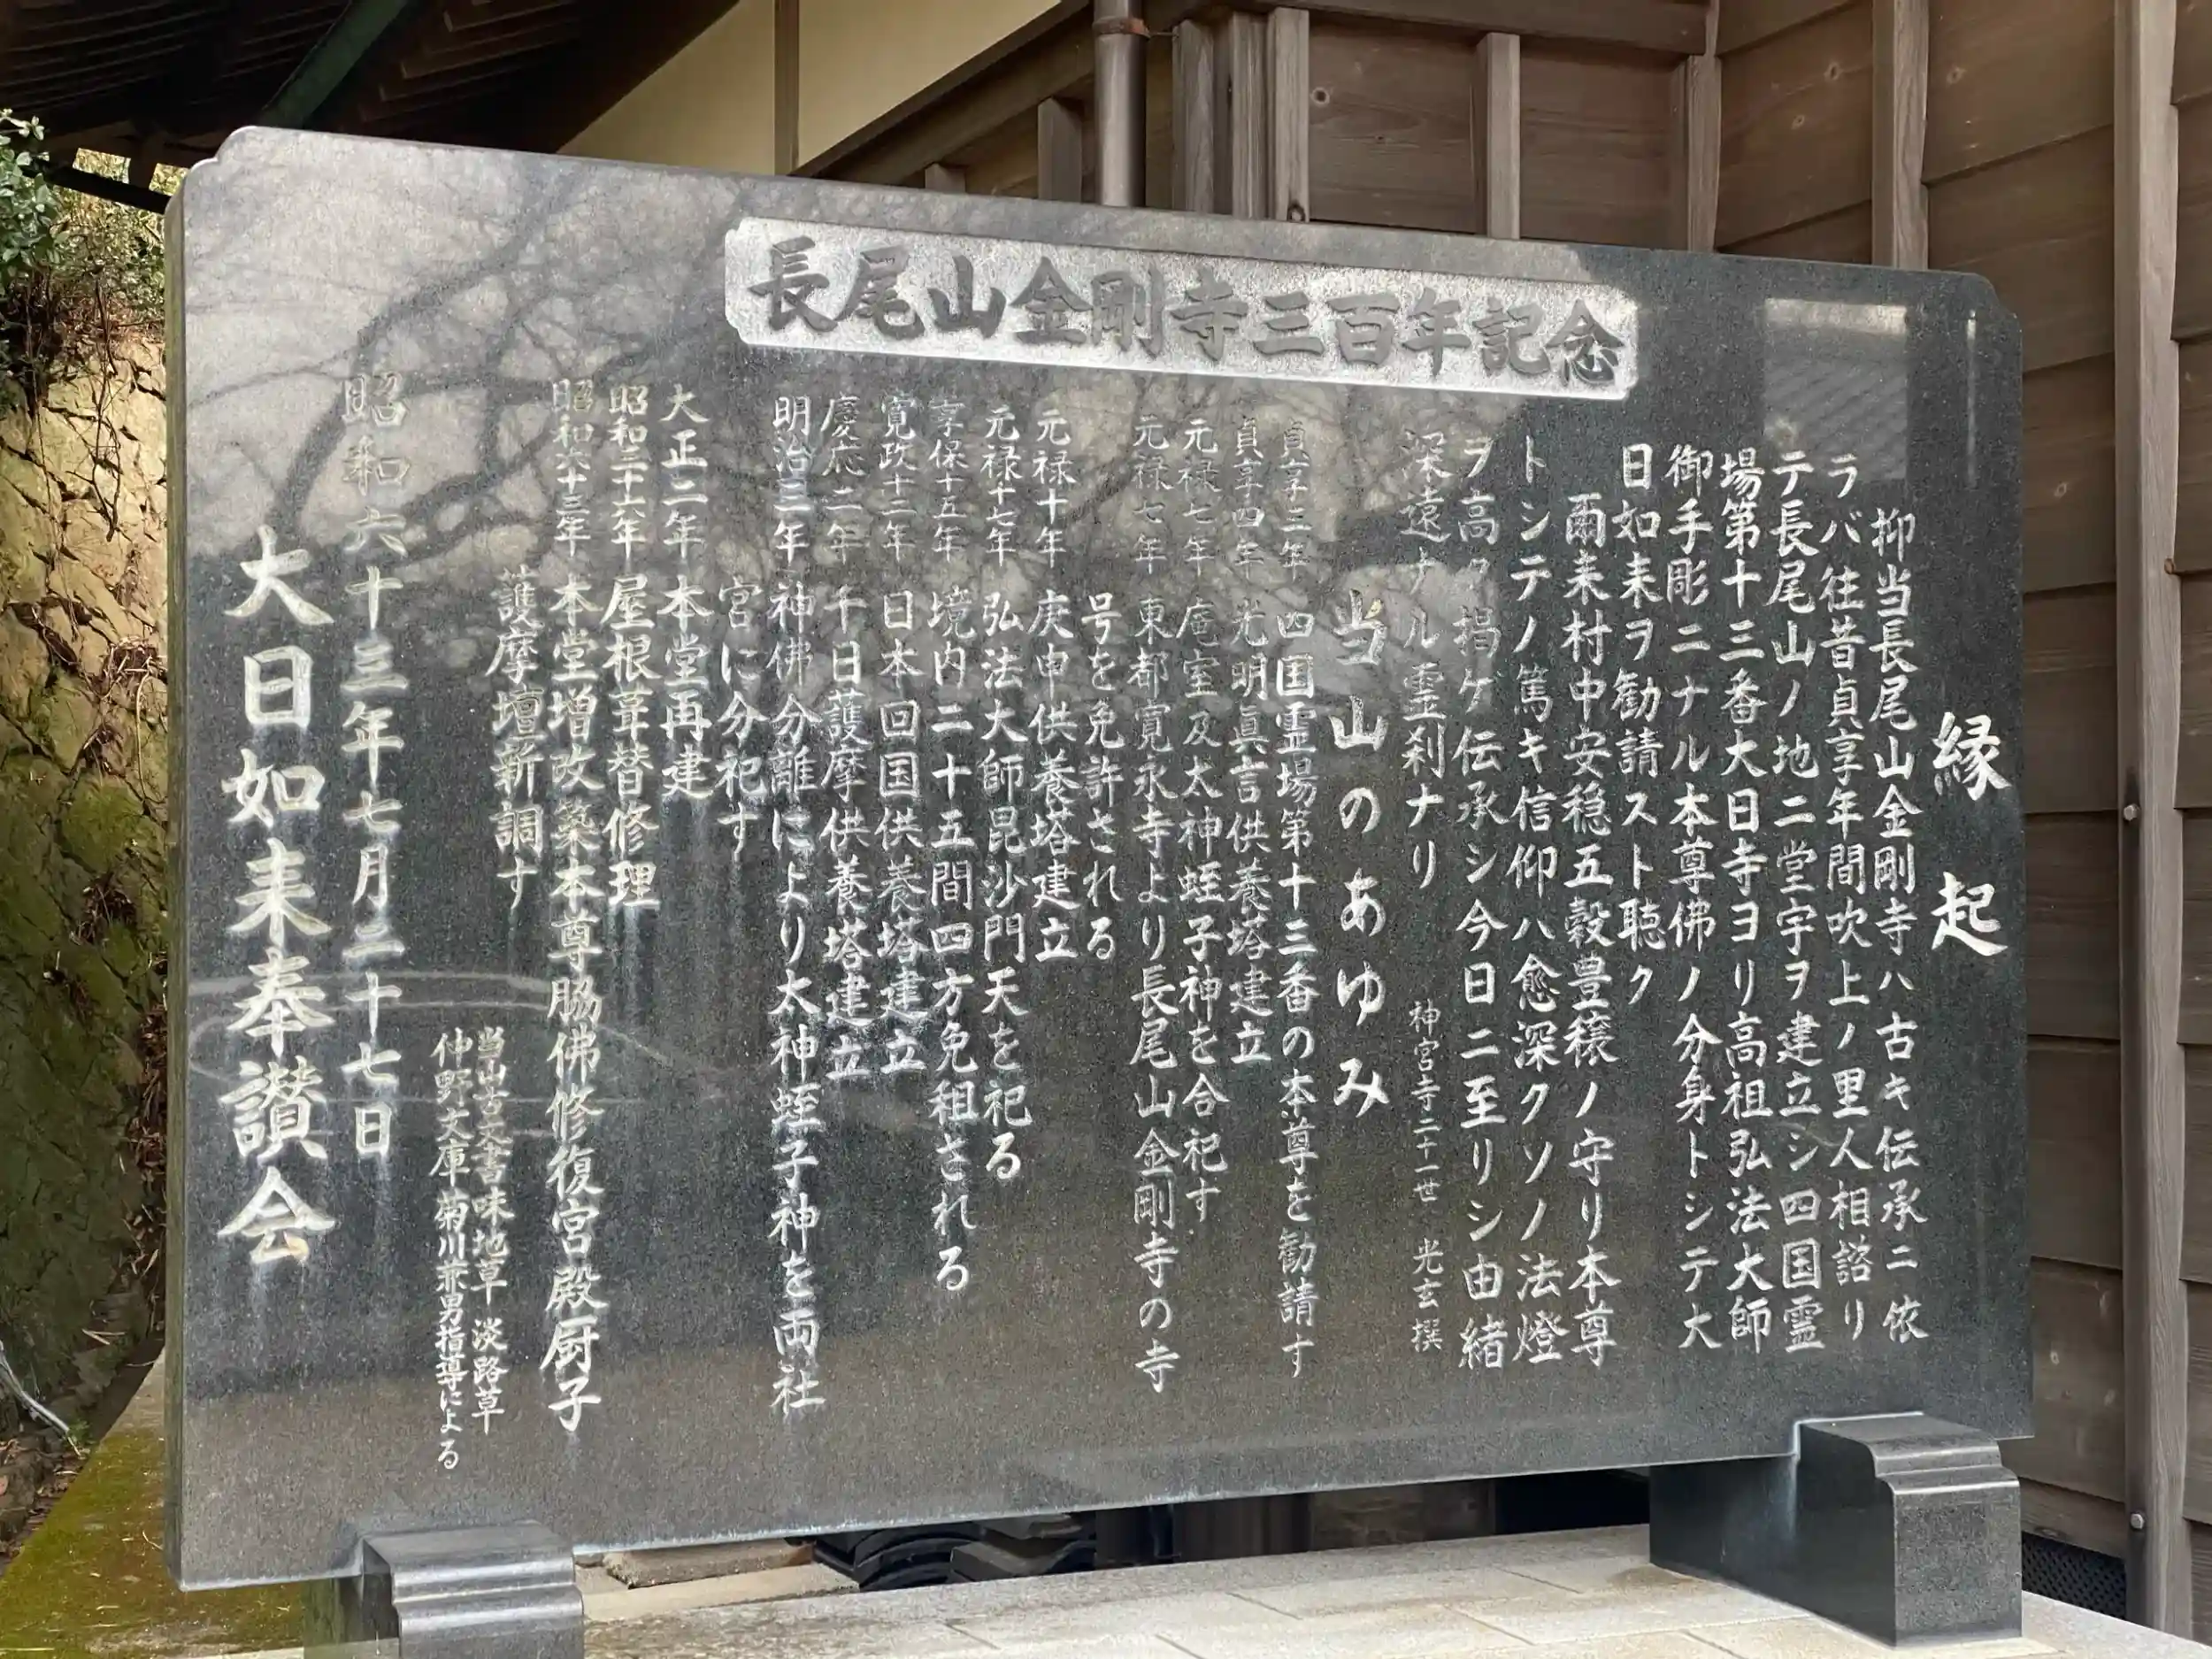 長尾山金剛寺三百年記念
縁起
抑当長尾山金剛寺ハ古キ伝承ニ依
ラバ往昔貞享年間吹上ノ里人相諮リ
テ長尾山ノ地ニ堂宇ヲ建立シ四国霊
場第十三番大日寺ヨリ高祖弘法大師
御手彫ニナル本尊佛ノ分身トシテ大
日如来ヲ勧請スト聴ク
爾来村中安穏五穀豊穣ノ守リ本尊
トシテノ篤キ信仰ハ愈深クソノ法燈
ヲ高ク掲ゲ伝承シ今日ニ至リシ由緒
深遠ナル霊刹ナリ
神宮寺二十一世 光玄撰
当山のあゆみ
貞享三年 四国霊場第十三番の本尊を勧請す
貞享四年 光明眞言供養塔建立
元禄七年 庵室及太神蛭子神を合祀す
元禄七年 東都寛永寺より長尾山金剛寺の寺
号を免許される
元禄十年 庚申供養塔建立
元禄十七年 弘法大師毘沙門天を祀る
享保十五年 境内二十五間四方免租される
寛政十二年 日本回国供養塔建立
慶応二年 千日護摩供養塔建立
明治三年 神佛分離により太神蛭子神を両社
宮に分祀す
大正二年 本堂再建
昭和三十六年 屋根葺替修理
昭和六十三年 本堂増改築本尊脇佛修復宮殿厨子
護摩壇新調す
当山古文書味地草 淡路草
仲野文庫 菊川兼男指導による
昭和六十三年七月二十七日
大日如来奉讃会